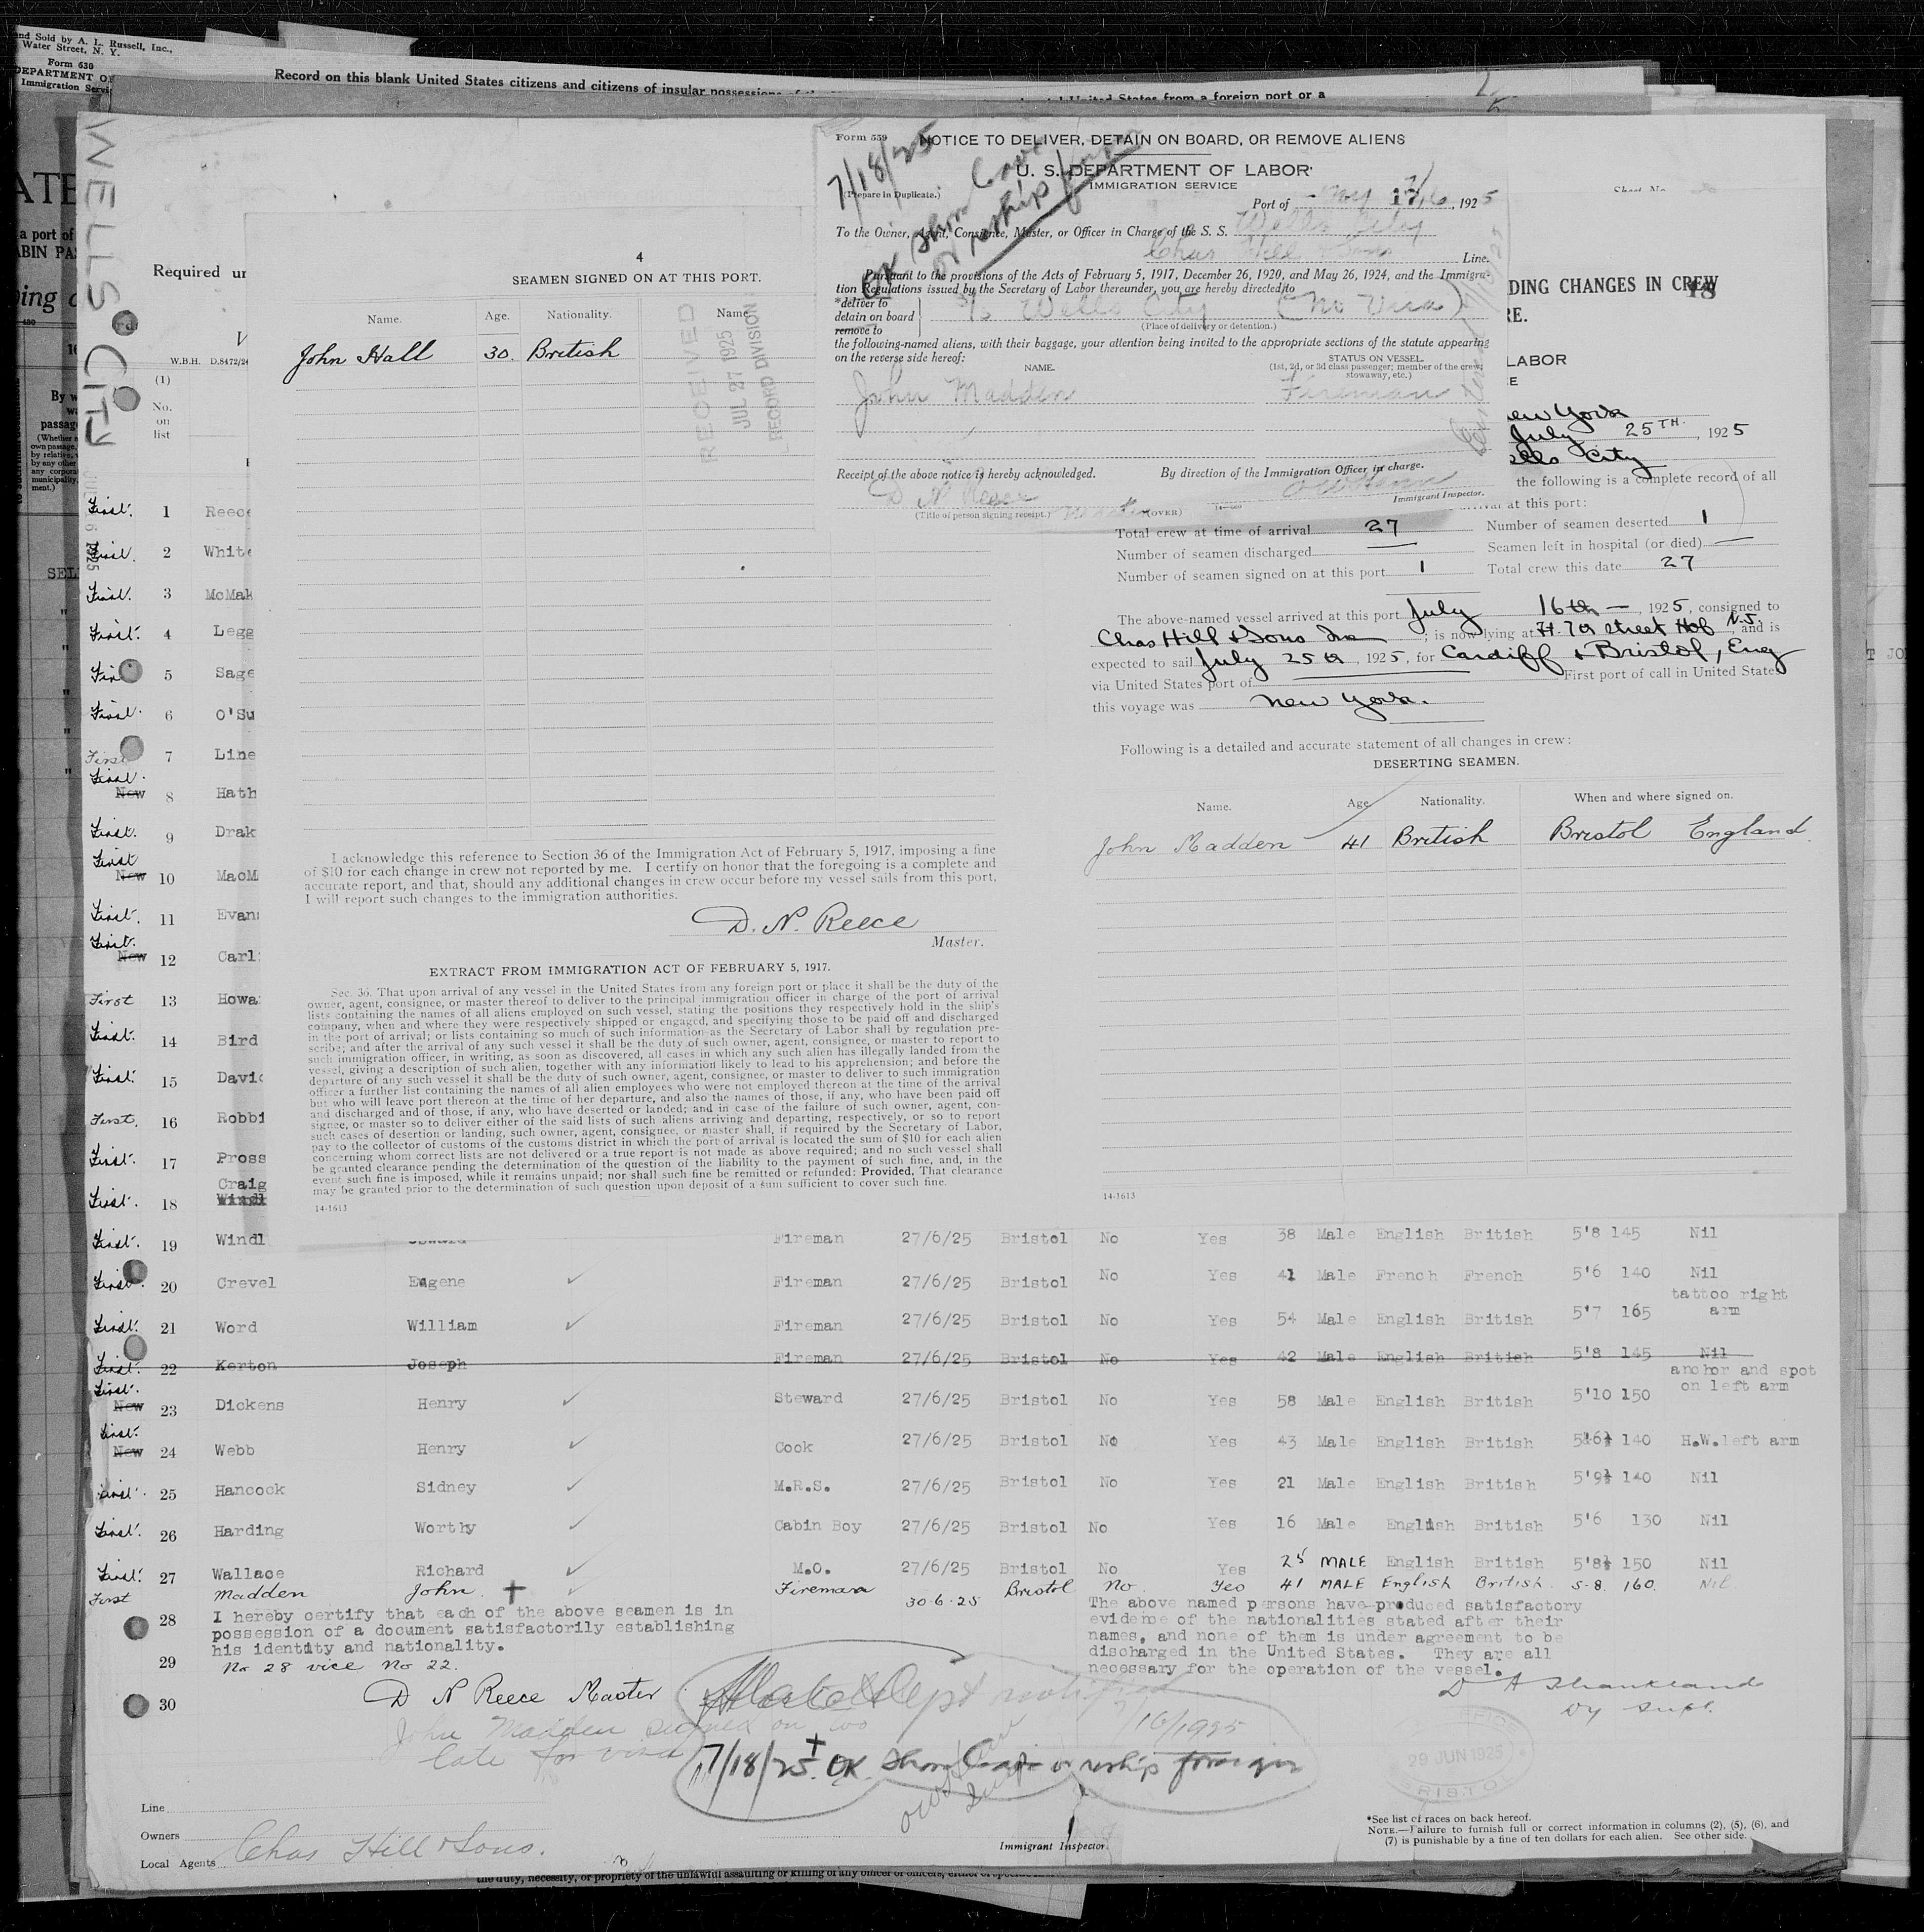 and Sold by A. L. Russell, Inc.,
Water Street, N. Y.
Form 630
DEPARTMENT O
Immigration Servi
Record on this blank United States citizens and citizens of insular possessions
United States from a foreign port or a
WELLS CITY
Required un
W.B.H. D.8472/24
(1)
No.
on
list
4
SEAMEN SIGNED ON AT THIS PORT.
Name. Age. Nationality. Name
John Hall 30. British
RECEIVED
JUL 27 1925
RECORD DIVISION
I acknowledge this reference to Section 36 of the Immigration Act of February 5, 1917, imposing a fine
of $10 for each change in crew not reported by me. I certify on honor that the foregoing is a complete and
accurate report, and that, should any additional changes in crew occur before my vessel sails from this port,
I will report such changes to the immigration authorities.
D. N. Reece
Master.
EXTRACT FROM IMMIGRATION ACT OF FEBRUARY 5, 1917.
Sec. 36. That upon arrival of any vessel in the United States from any foreign port or place it shall be the duty of the
owner, agent, consignee, or master thereof to deliver to the principal immigration officer in charge of the port of arrival
lists containing the names of all aliens employed on such vessel, stating the positions they respectively hold in the ship's
company, when and where they were respectively shipped or engaged, and specifying those to be paid off and discharged
in the port of arrival; or lists containing so much of such information as the Secretary of Labor shall by regulation pre-
scribe; and after the arrival of any such vessel it shall be the duty of such owner, agent, consignee, or master to report to
such immigration officer, in writing, as soon as discovered, all cases in which any such alien has illegally landed from the
vessel, giving a description of such alien, together with any information likely to lead to his apprehension; and before the
departure of any such vessel it shall be the duty of such owner, agent, consignee, or master to deliver to such immigration
officer a further list containing the names of all alien employees who were not employed thereon at the time of the arrival
but who will leave port thereon at the time of her departure, and also the names of those, if any, who have been paid off
and discharged and of those, if any, who have deserted or landed; and in case of the failure of such owner, agent, con-
signee, or master so to deliver either of the said lists of such aliens arriving and departing, respectively, or so to report
such cases of desertion or landing, such owner, agent, consignee, or master shall, if required by the Secretary of Labor,
pay to the collector of customs of the customs district in which the port of arrival is located the sum of $10 for each alien
concerning whom correct lists are not delivered or a true report is not made as above required; and no such vessel shall
be granted clearance pending the determination of the question of the liability to the payment of such fine, and, in the
event such fine is imposed, while it remains unpaid; nor shall such fine be remitted or refunded: Provided, That clearance
may be granted prior to the determination of such question upon deposit of a sum sufficient to cover such fine.
14-1613
Form 559
NOTICE TO DELIVER, DETAIN ON BOARD, OR REMOVE ALIENS
U. S. DEPARTMENT OF LABOR
IMMIGRATION SERVICE
(Prepare in Duplicate.)
7/18/25
OK Shore Leave
or reship foreign
Port of NY 7/16, 1925
To the Owner, Agent, Consignee, Master, or Officer in Charge of the S. S. Wells City
Chas Hill & Sons Line.
Pursuant to the provisions of the Acts of February 5, 1917, December 26, 1920, and May 26, 1924, and the Immigra-
tion Regulations issued by the Secretary of Labor thereunder, you are hereby directed to
*deliver to
detain on board
remove to
S/S Wells City (No Visa)
(Place of delivery or detention.)
the following-named aliens, with their baggage, your attention being invited to the appropriate sections of the statute appearing
on the reverse side hereof:
NAME.
STATUS ON VESSEL.
(1st, 2d, or 3d class passenger; member of the crew;
stowaway, etc.)
John Madden Fireman
Receipt of the above notice is hereby acknowledged.
By direction of the Immigration Officer in charge.
D N Reece
Immigrant Inspector.
(Title of person signing receipt.) Master (OVER)
DING CHANGES IN CREW
RE.
LABOR
ew York
July 25TH., 1925
ells City
the following is a complete record of all
at this port:
Total crew at time of arrival 27 Number of seamen deserted 1
Number of seamen discharged — Seamen left in hospital (or died) —
Number of seamen signed on at this port 1 Total crew this date 27
The above-named vessel arrived at this port July 16th —, 1925, consigned to
Chas Hill & Sons Inc; is now lying at Ft. 7th Street Hob N.J., and is
expected to sail July 25th, 1925, for Cardiff & Bristol, Eng
via United States port of First port of call in United States
this voyage was New York.
Following is a detailed and accurate statement of all changes in crew:
DESERTING SEAMEN.
Name. Age Nationality. When and where signed on.
John Madden 41 British Bristol England
14-1613
First. 1 Reece
First. 2 White
First. 3 McMak
First. 4 Legg
First 5 Sage
First. 6 O'Su
First 7 Line
First. New 8 Hath
First. 9 Drak
First New 10 MacM
First. 11 Evan
First. New 12 Carl
First 13 Howa
First. 14 Bird
First. 15 Davi
First. 16 Robbi
First. 17 Pross
Craig
First. 18 Windl
First. 19 Windl Edward Fireman 27/6/25 Bristol No Yes 38 Male English British 5'8 145 Nil
First. 20 Crevel Eugene Fireman 27/6/25 Bristol No Yes 41 Male French French 5'6 140 Nil
First. 21 Word William Fireman 27/6/25 Bristol No Yes 54 Male English British 5'7 165 tattoo right arm
First. 22 Kerton Joseph Fireman 27/6/25 Bristol No Yes 42 Male English British 5'8 145 Nil
First. New 23 Dickens Henry Steward 27/6/25 Bristol No Yes 58 Male English British 5'10 150 anchor and spot on left arm
First. New 24 Webb Henry Cook 27/6/25 Bristol No Yes 43 Male English British 5'6½ 140 H.W.left arm
First. 25 Hancock Sidney M.R.S. 27/6/25 Bristol No Yes 21 Male English British 5'9½ 140 Nil
First. 26 Harding Worthy Cabin Boy 27/6/25 Bristol No Yes 16 Male English British 5'6 130 Nil
First. 27 Wallace Richard M.O. 27/6/25 Bristol No Yes 25 MALE English British 5'8½ 150 Nil
First Madden John Fireman 30.6.25 Bristol No. Yes 41 MALE English British 5-8. 160. Nil
28 I hereby certify that each of the above seamen is in
possession of a document satisfactorily establishing
his identity and nationality.
29 No 28 vice No 22.
30 D N Reece Master
The above named persons have produced satisfactory
evidence of the nationalities stated after their
names, and none of them is under agreement to be
discharged in the United States. They are all
necessary for the operation of the vessel.
D A Shankland
Dy Supt.
29 JUN 1925
BRISTOL
John Madden signed on too
late for visa
7/18/25. OK Shore Leave or reship foreign
Line
Owners
Local Agents Chas Hill & Sons.
Immigrant Inspector.
*See list of races on back hereof.
NOTE.—Failure to furnish full or correct information in columns (2), (5), (6), and
(7) is punishable by a fine of ten dollars for each alien. See other side.
the duty, necessity, or propriety of the unlawful assaulting or killing of any officer or officers,